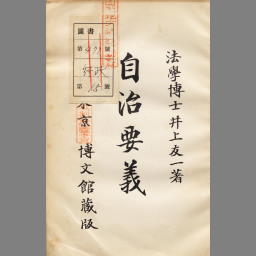 法學博士井上友一著
自治要義
東京 博文館藏版
圖書
第
號
行政
第
號